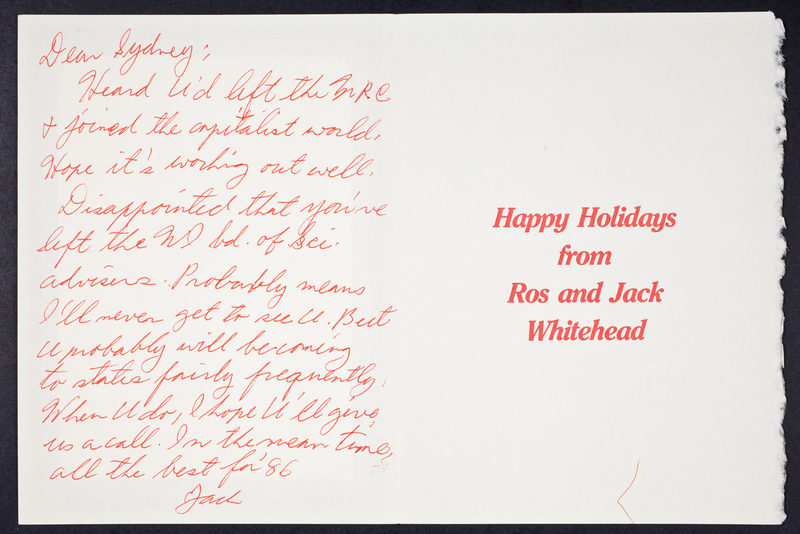 Dear Sydney;
Heard U'd left the MRC
& joined the capitalist world.
Hope it's working out well.
Disappointed that you've
left the WI bd. of Sci.
advisers. Probably means
I'll never get to see U. But
U probably will be coming
to states fairly frequently.
When U do, I hope U'll give
us a call. In the mean time,
all the best for '86
Jack
Happy Holidays
from
Ros and Jack
Whitehead